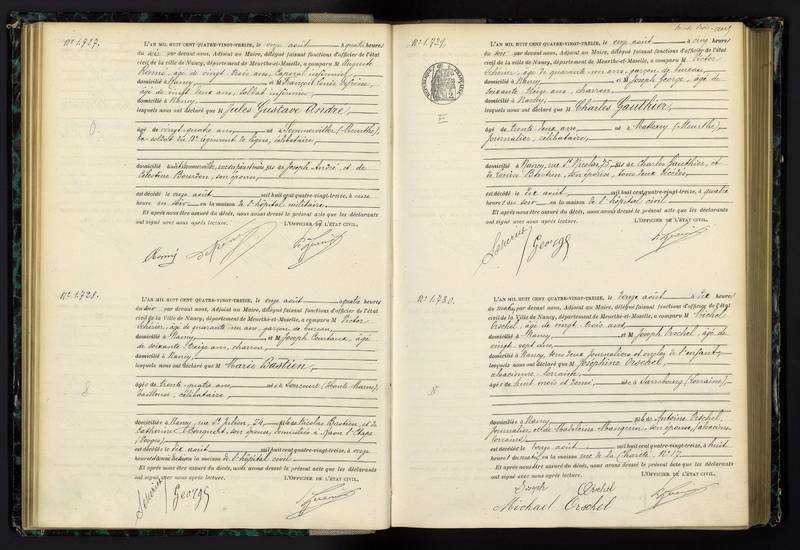 No 1.727.
L'AN MIL HUIT CENT QUATRE-VINGT-TREIZE, le onze août à quatre heures
du soir par devant nous, Adjoint au Maire, délégué faisant fonctions d'officier de l'état
civil de la ville de Nancy, département de Meurthe-et-Moselle, a comparu M Auguste
âgé de vingt trois ans, Caporal infirmier
domicilié à Nancy et M François
âgé de vingt deux ans, soldat infirmier
domicilié à Nancy
lesquels nous ont déclaré que M Jules Gustave André,
âgé de vingt quatre ans né à Sommerviller (Meurthe),
régiment de ligne, célibataire,
domicilié à fils de Joseph André, et de
Célestine Bourdon, son épouse,
est décédé le onze août mil huit cent quatre-vingt-treize, à onze
heures du soir en la maison de l'hôpital militaire.
Et après nous être assuré du décès, nous avons dressé le présent acte que les déclarants
ont signé avec nous après lecture. L'OFFICIER DE L'ÉTAT CIVIL,
No 1.728.
L'AN MIL HUIT CENT QUATRE-VINGT-TREIZE, le onze août à quatre heures
du soir par devant nous, Adjoint au Maire, délégué faisant fonctions d'officier de l'état
civil de la Ville de Nancy, département de Meurthe-et-Moselle, a comparu M Victor
âgé de quarante un ans, garçon de bureau
domicilié à Nancy et M Joseph âgé
de soixante treize ans, charron
domicilié à Nancy
lesquels nous ont déclaré que M Marie Bastien,
âgée de trente quatre ans, née à (Haute Marne),
tailleuse, célibataire,
domiciliée à Nancy, rue St Julien, 24, fille de Nicolas Bastien, et de
Catherine son épouse, domiciliés à Raon l'Etape
(Vosges)
est décédée le dix août mil huit cent quatre-vingt-treize, à onze
heures en la maison de l'hôpital civil.
Et après nous être assuré du décès, nous avons dressé le présent acte que les déclarants
ont signé avec nous après lecture. L'OFFICIER DE L'ÉTAT CIVIL,
George
No 1.729.
L'AN MIL HUIT CENT QUATRE-VINGT-TREIZE, le onze août à cinq heures
du soir par devant nous, Adjoint au Maire, délégué faisant fonctions d'officier de l'état
civil de la Ville de Nancy, département de Meurthe-et-Moselle, a comparu M Victor
âgé de quarante un ans, garçon de bureau
domicilié à Nancy et M Joseph George, âgé de
soixante treize ans, charron
domicilié à Nancy,
lesquels nous ont déclaré que M Charles Gauthier,
E
âgé de trente deux ans né à Mattexey (Meurthe),
journalier, célibataire,
domicilié à Nancy, rue St Nicolas, 75, fils de Charles Gauthier, et
de son épouse, tous deux décédés,
est décédé le dix août mil huit cent quatre-vingt-treize, à quatre
heures du soir en la maison de l'hôpital civil.
Et après nous être assuré du décès, nous avons dressé le présent acte que les déclarants
ont signé avec nous après lecture. L'OFFICIER DE L'ÉTAT CIVIL,
George
No 1.730.
L'AN MIL HUIT CENT QUATRE-VINGT-TREIZE, le douze août à dix heures
du matin, par devant nous, Adjoint au Maire, délégué faisant fonctions d'officier de l'état
civil de la Ville de Nancy, département de Meurthe-et-Moselle, a comparu M Michel
Orschel, âgé de vingt trois ans
domicilié à Nancy et M Joseph Orschel, âgé de
vingt sept ans,
domicilié à Nancy, tous deux journaliers et oncles de l'enfant,
alsaciens-lorrains
lesquels nous ont déclaré que M Joséphine Orschel,
âgée de huit mois et demi, née à Sarrebourg (Lorraine),
domiciliée à Nancy fille de Antoine Orschel,
journalier, et de Madeleine son épouse, (alsaciens-
lorrains)
est décédée le onze août mil huit cent quatre-vingt-treize, à huit
heures du matin, en la maison rue de la Charité, No 17.
Et après nous être assuré du décès, nous avons dressé le présent acte que les déclarants
ont signé avec nous après lecture. L'OFFICIER DE L'ÉTAT CIVIL,
Joseph Orschel
Michael Orschel